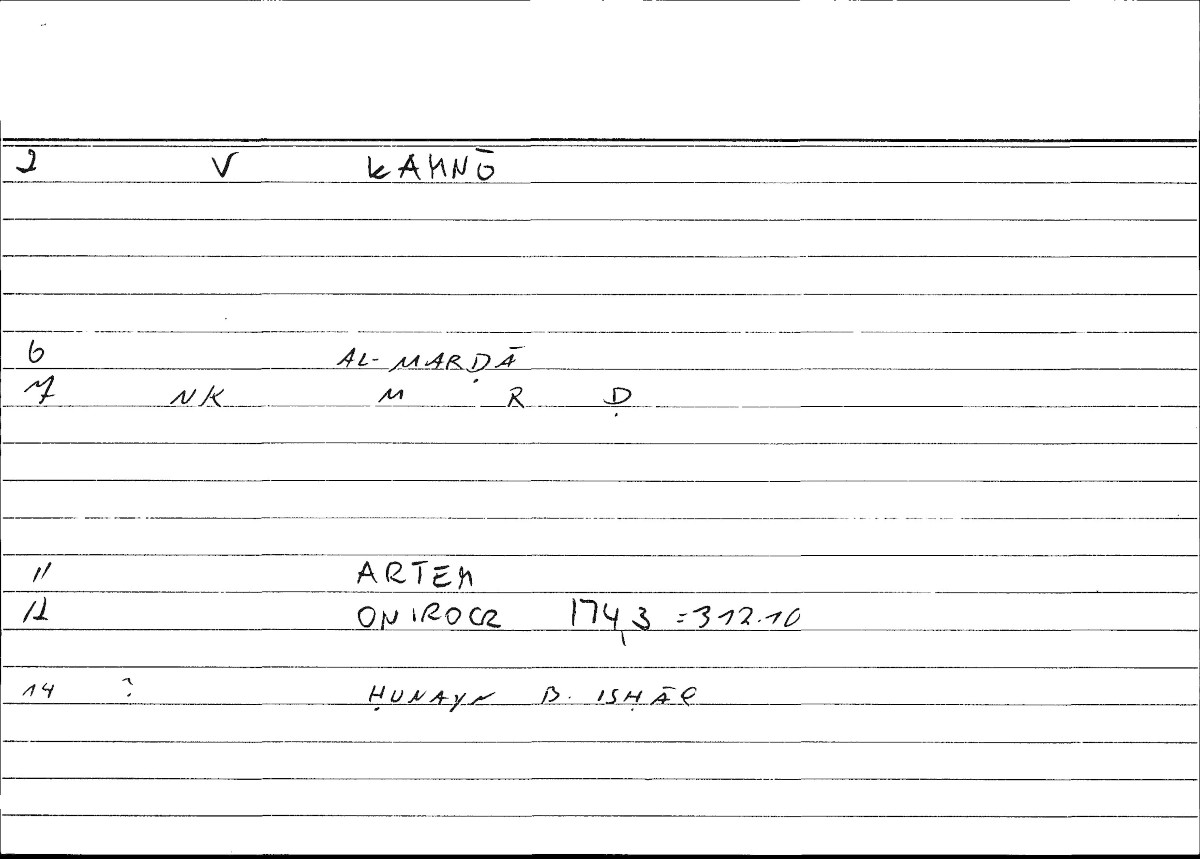 2 V KAMNŌ
6 AL-MARḌĀ
7 NK M R Ḍ
11 ARTEM
12 ONIROCR 174,3 = 312.10
14 ? ḤUNAYN B. ISḤĀQ